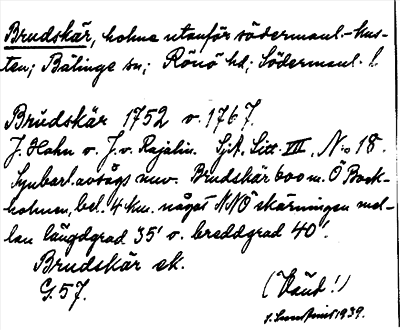 Brudskär, holme utanför södermanl.-kus-
ten; Bälinge sn; Rönö hd; Södermanl. l.
Brudskär 1752 o. 1767.
J. Hahn o. J. v. Rajalin. SjA, Litt. III, N:o 18.
Synbarl. avsågs nuv. Brudskär 600 m. Ö Bock-
holmen, bel. 4 km. något NNÖ skärningen mel-
lan längdgrad 35' o. breddgrad 40'.
Brudskär ek.
G. 57.
(Vänd!)
1939.